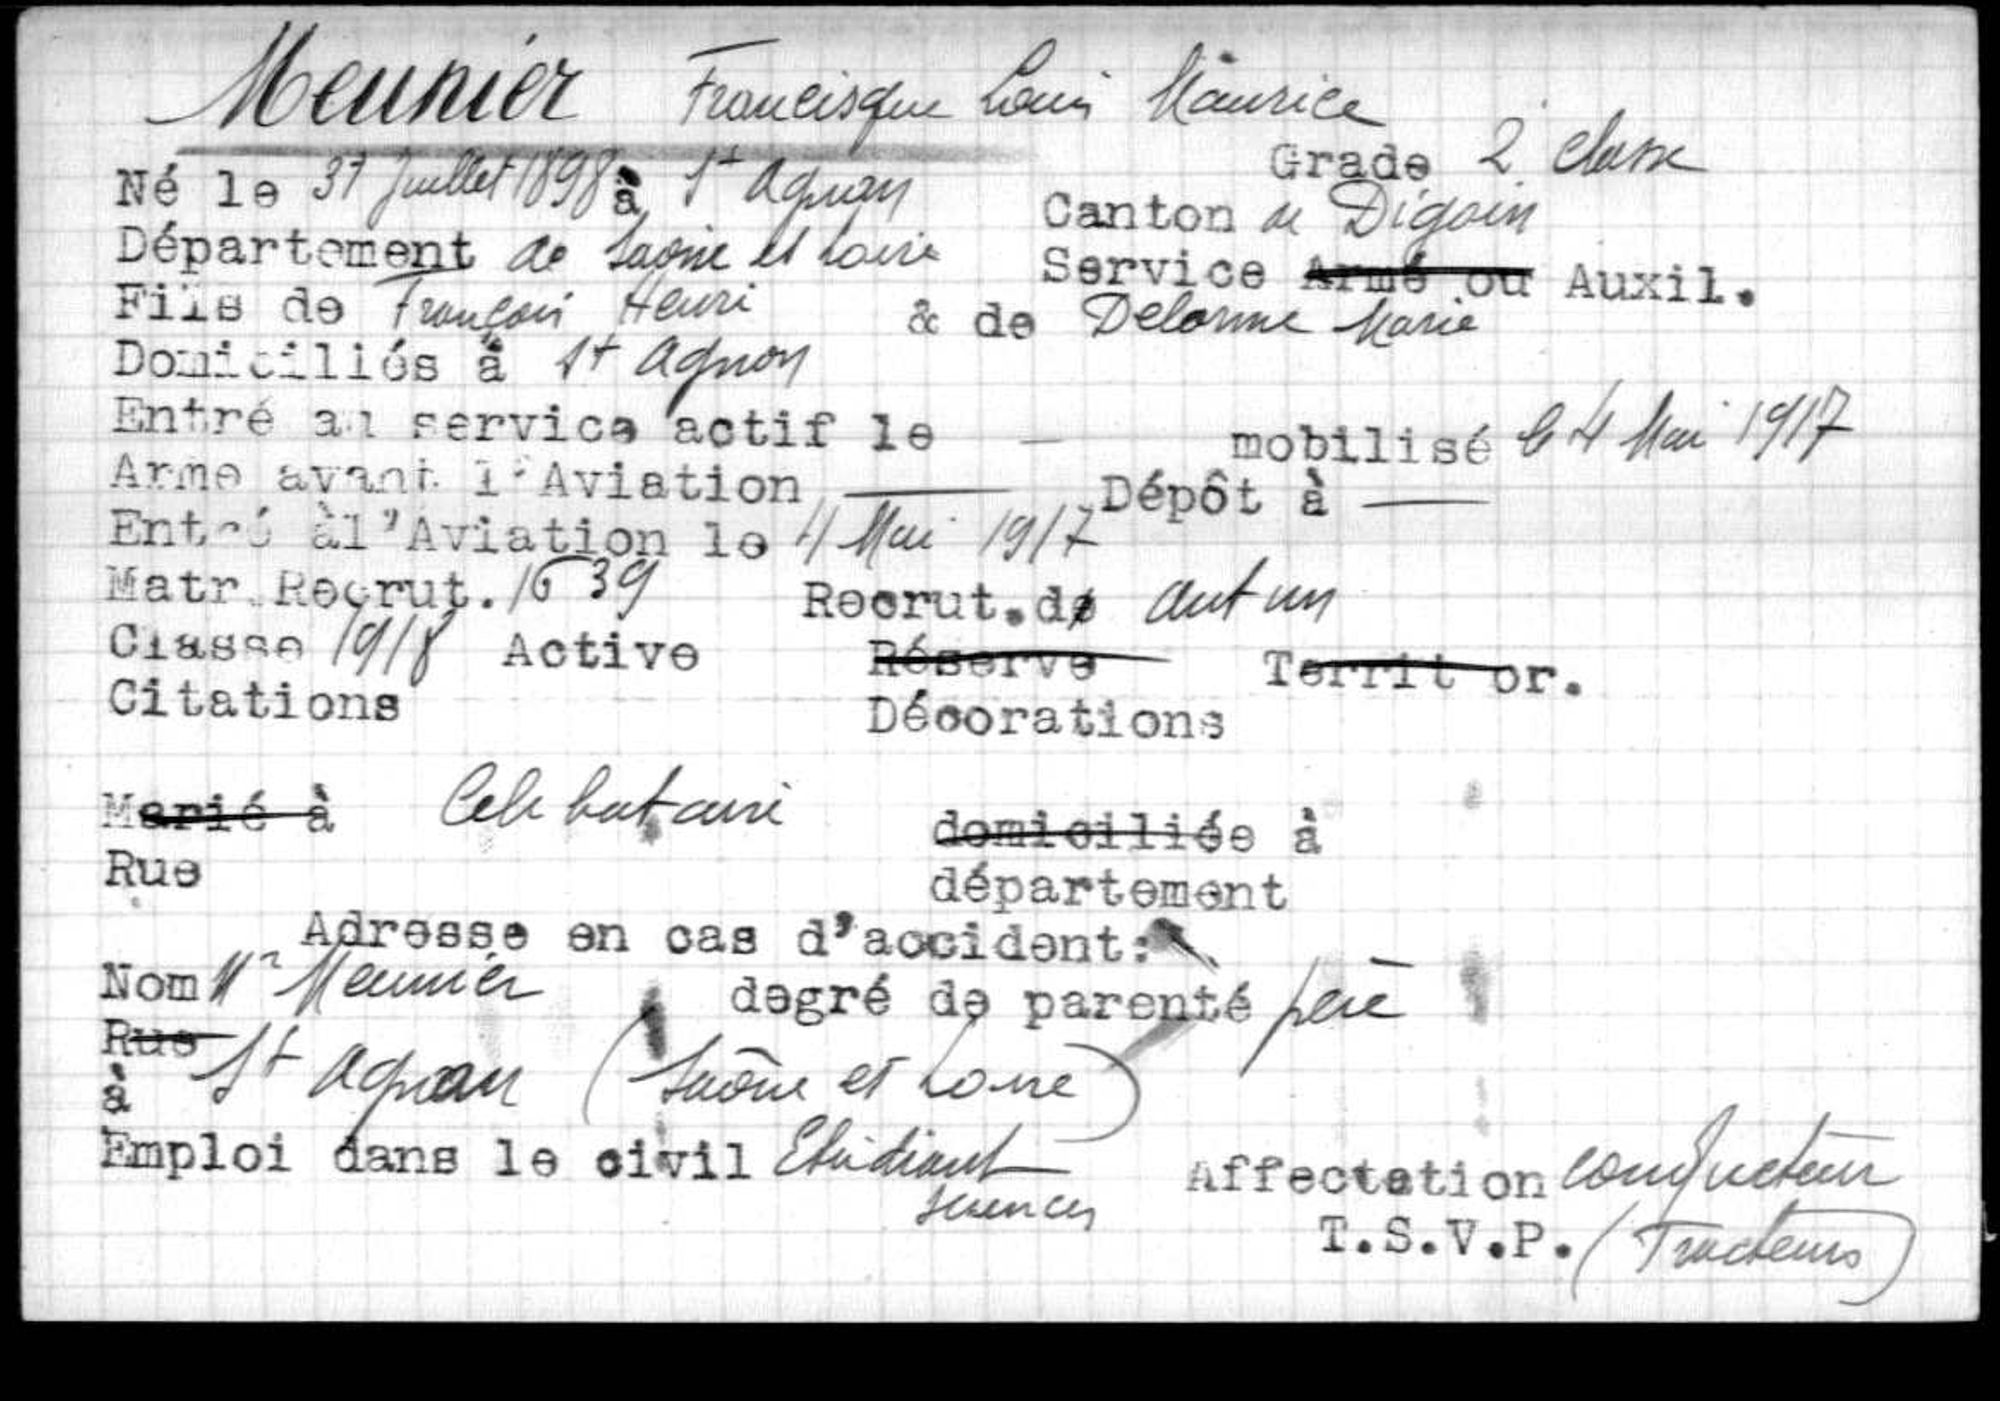 Meunier Francisque Louis Maurice
Grade 2e classe
Né le 31 Juillet 1898 à St Agnan
Canton de Digoin
Département de Saône et Loire
Service Armé ou Auxil.
Fils de François Henri & de Delorme Marie
Domiciliés à St Agnan
Entré au service actif le — mobilisé le 4 Mai 1917
Arme avant l'Aviation — Dépôt à —
Entré à l'Aviation le 4 Mai 1917
Matr. Recrut. 1639 Recrut. de Autun
Classe 1918 Active Réserve Territor.
Citations Décorations
Marié à Celibataire domiciliée à
Rue département
Adresse en cas d'accident:
Nom Mr Meunier degré de parenté père
Rue
à St Agnan (Saône et Loire)
Emploi dans le civil Etudiant
sciences
Affectation conducteur
T.S.V.P. (Tracteurs)